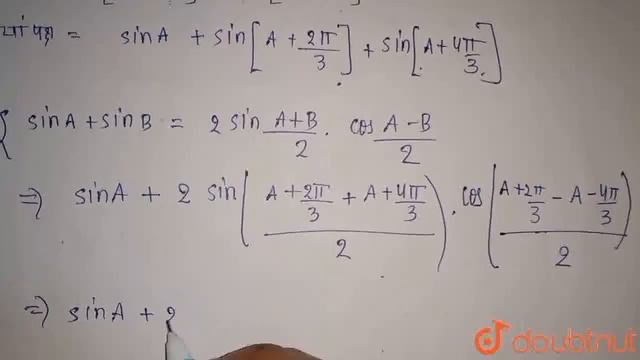 बायां पक्ष = sinA + sin[A + 2π/3] + sin[A + 4π/3]
{ sinA + sinB = 2 sin A+B/2 . cos A-B/2
=> sinA + 2 sin(A + 2π/3 + A + 4π/3 / 2) . cos(A + 2π/3 - A - 4π/3 / 2)
=> sinA + 2
doubtnut